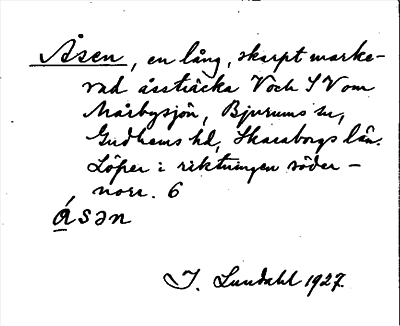 Åsen, en lång, skarpt marke-
rad åssträcka V och SV om
Mårbysjön, Bjurums sn,
Gudhems hd, Skaraborgs län.
Löper i riktningen söder-
norr. 6
ásən
I. Lundahl 1927.